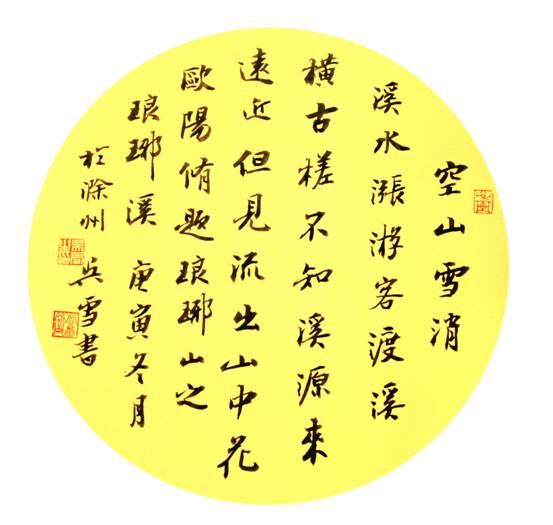 空山雪消
溪水漲游客渡溪
橫古槎不知溪源來
遠近但見流出山中花
歐陽脩題琅琊山之
琅琊溪 庚寅冬月
於滁州
吳雪書